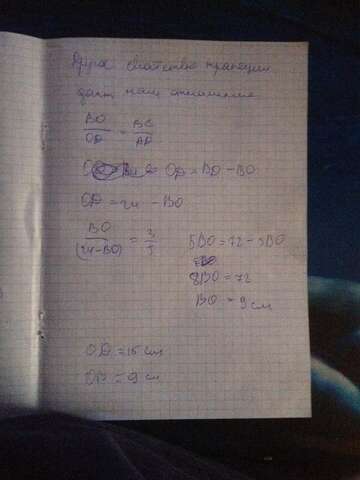 Другое свойство трапеции
дает нам отношение
BO/OD = BC/AD
OD = BD - BO
OD = 24 - BO
BO/(24-BO) = 3/5
5BO = 72 - 3BO
8BO = 72
BO = 9 см
OD = 15 см
OB = 9 см